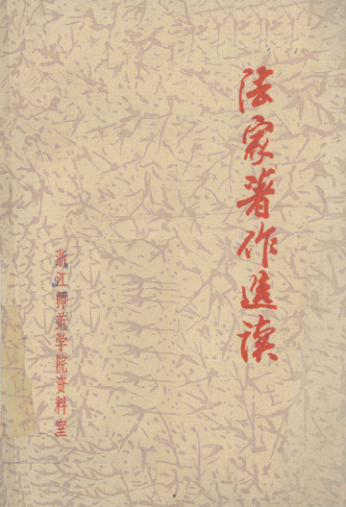 法家著作选读
浙江师范学院资料室